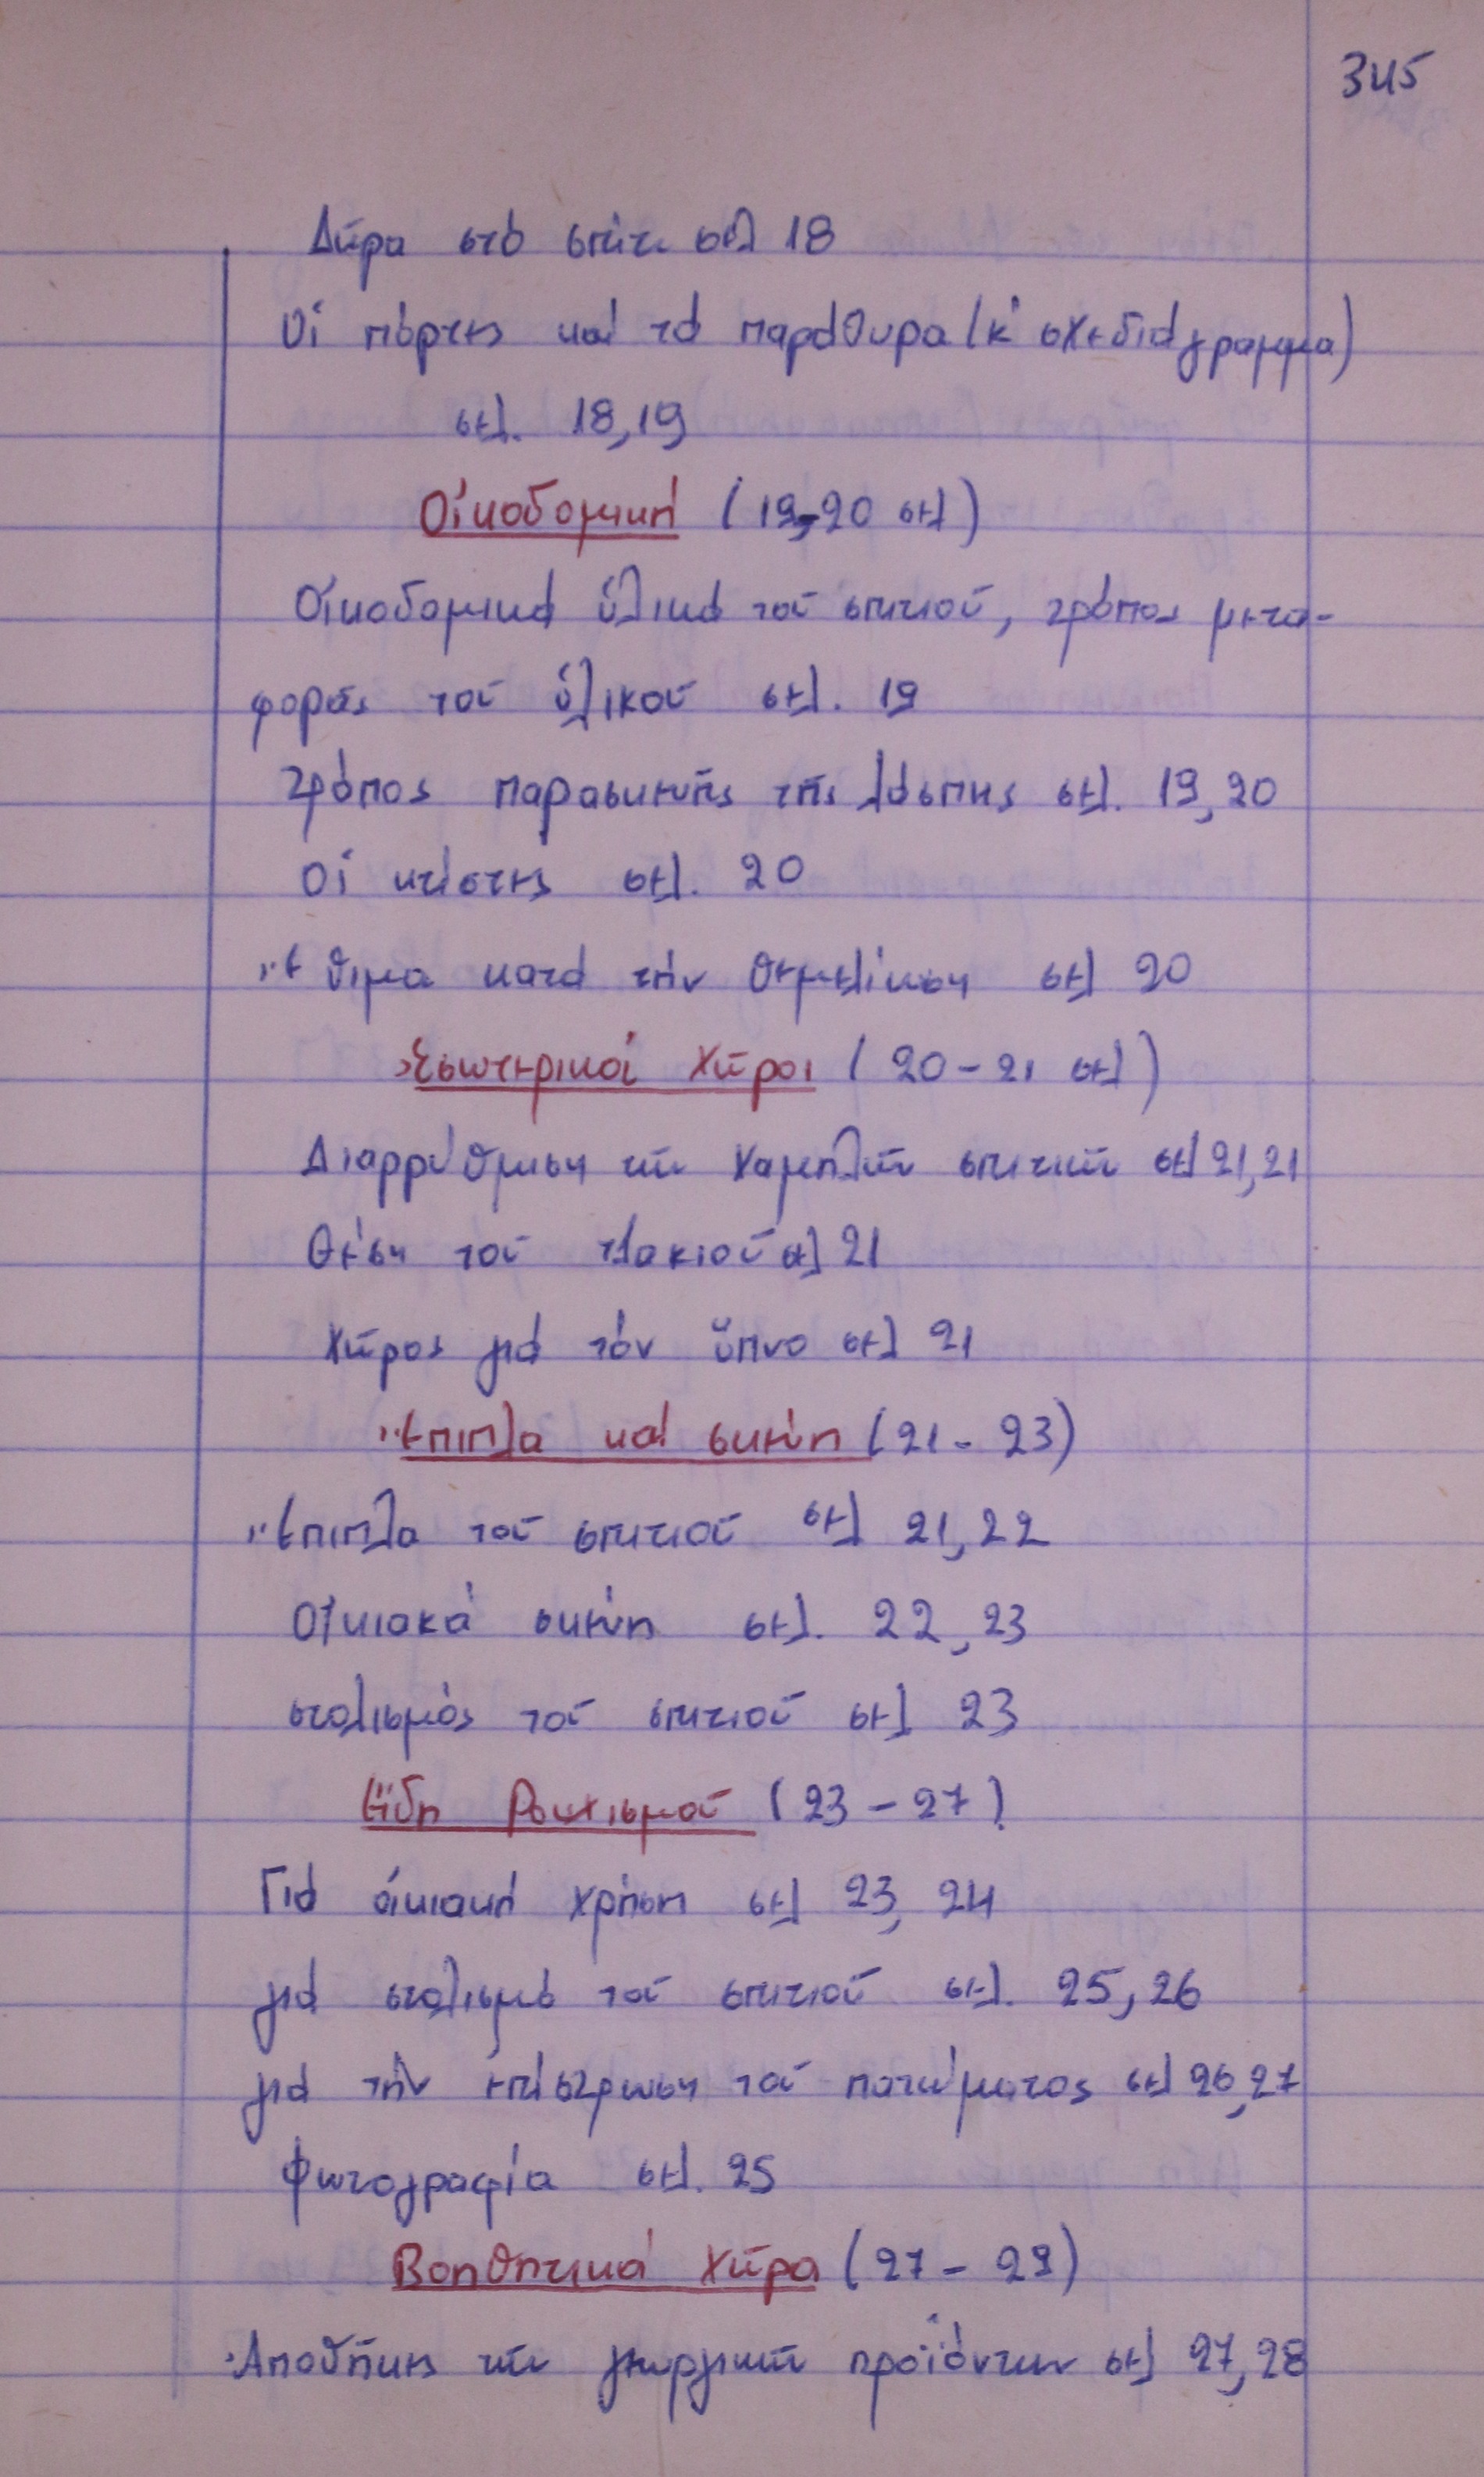 345
Δῶρα στό σπίτι σελ 18
Οἱ πόρτες καί τά παράθυρα (κ' σχεδιάγραμμα)
σελ. 18,19
Οἰκοδομική (19-20 σελ)
Οἰκοδομικά ὑλικά τοῦ σπιτιοῦ, τρόπος μετα-
φορᾶς τοῦ ὑλικοῦ σελ. 19
τρόπος παρασκευῆς τῆς λάσπης σελ. 19,20
Οἱ κτίστες σελ. 20
Ἔθιμα κατά τήν θεμελίωση σελ 20
Ἐσωτερικοί Χῶροι (20-21 σελ)
Διαρρύθμιση τῶν χαμηλῶν σπιτιῶν σελ 21,21
Θέση τοῦ τζακιοῦ σελ 21
Χῶρος γιά τόν ὕπνο σελ 21
Ἔπιπλα καί σκεύη (21-23)
Ἔπιπλα τοῦ σπιτιοῦ σελ 21,22
Οἰκιακά σκεύη σελ. 22,23
στολισμός τοῦ σπιτιοῦ σελ 23
Εἴδη Ρουχισμοῦ (23-27)
Γιά οἰκιακή χρήση σελ 23, 24
γιά στολισμό τοῦ σπιτιοῦ σελ. 25,26
γιά τήν ἐπίστρωση τοῦ πατώματος σελ 26,27
Φωτογραφία σελ. 25
Βοηθητικά Χῶρα (27-29)
Ἀποθῆκες τῶν γεωργικῶν προϊόντων σελ 27,28